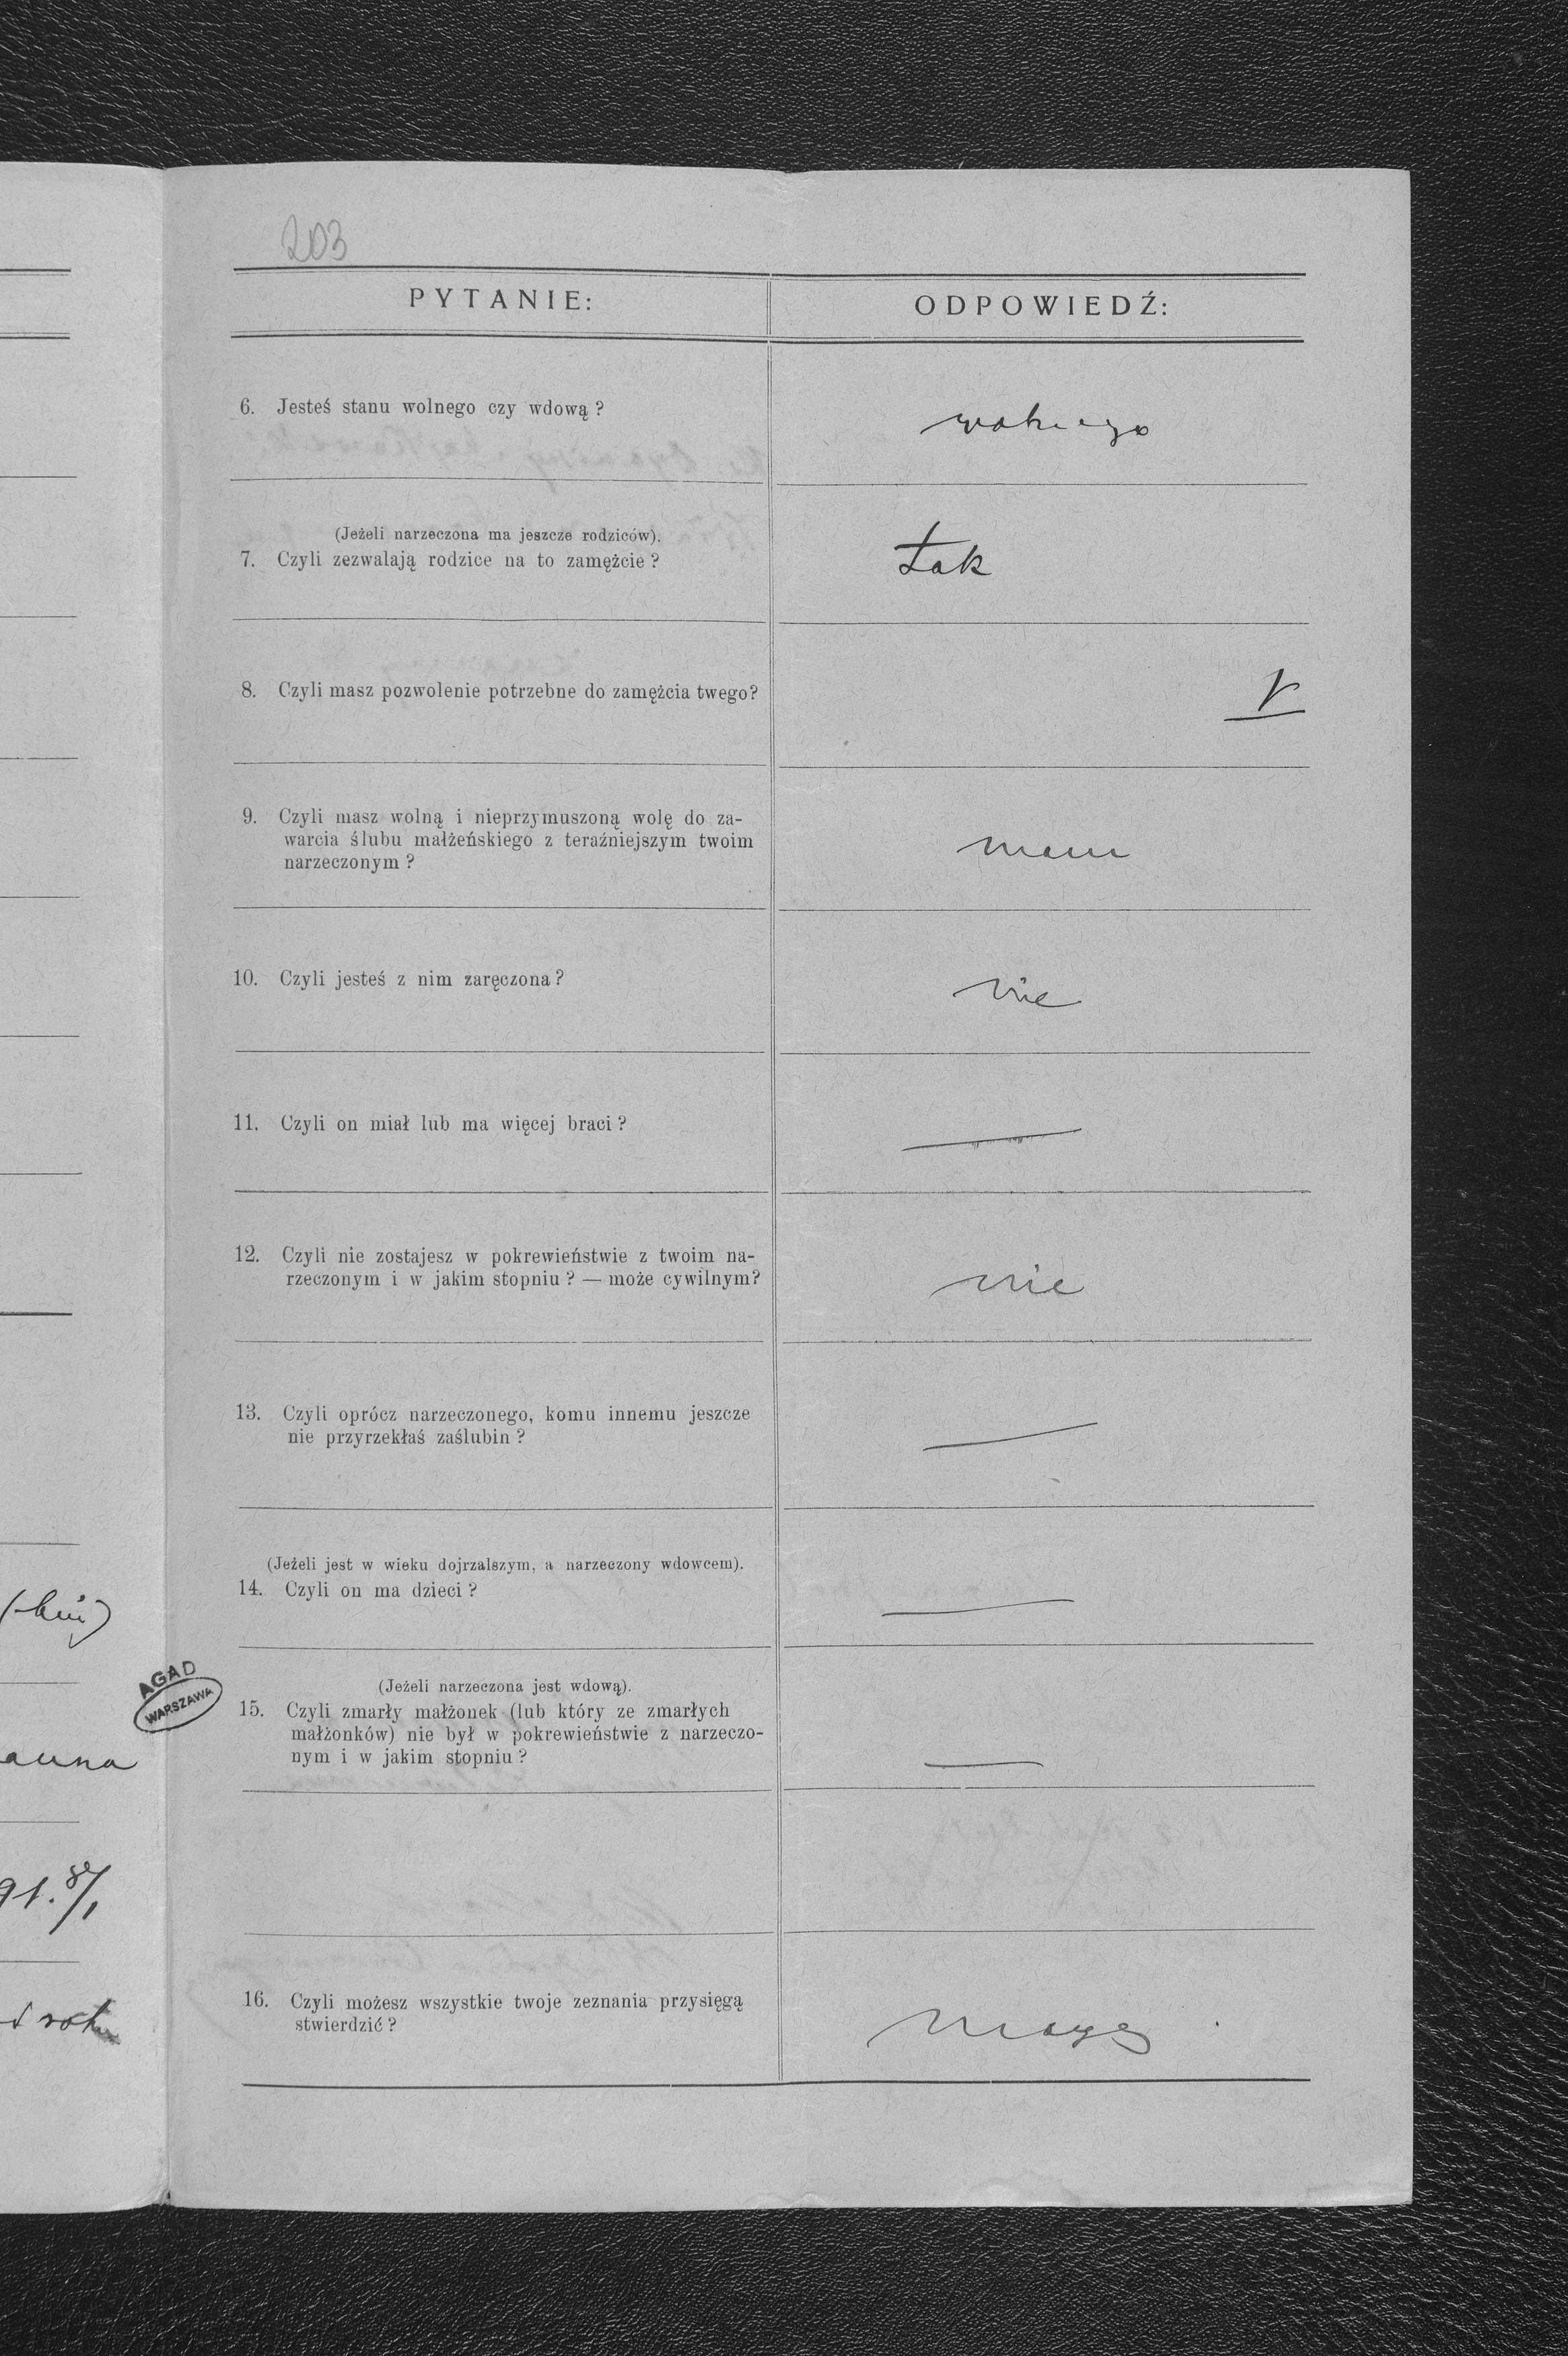 203
PYTANIE:
ODPOWIEDŹ:
6. Jesteś stanu wolnego czy wdową ?
wolnego
(Jeżeli narzeczona ma jeszcze rodziców).
7. Czyli zezwalają rodzice na to zamężcie ?
tak
8. Czyli masz pozwolenie potrzebne do zamężcia twego?
9. Czyli masz wolną i nieprzymuszoną wolę do za-
warcia ślubu małżeńskiego z teraźniejszym twoim
narzeczonym ?
mam
10. Czyli jesteś z nim zaręczona ?
nie
11. Czyli on miał lub ma więcej braci ?
—
12. Czyli nie zostajesz w pokrewieństwie z twoim na-
rzeczonym i w jakim stopniu ? — może cywilnym?
nie
13. Czyli oprócz narzeczonego, komu innemu jeszcze
nie przyrzekłaś zaślubin ?
—
(Jeżeli jest w wieku dojrzalszym, a narzeczony wdowcem).
14. Czyli on ma dzieci ?
—
(Jeżeli narzeczona jest wdową).
15. Czyli zmarły małżonek (lub który ze zmarłych
małżonków) nie był w pokrewieństwie z narzeczo-
nym i w jakim stopniu ?
—
16. Czyli możesz wszystkie twoje zeznania przysięgą
stwierdzić ?
mogę
AGAD
WARSZAWA